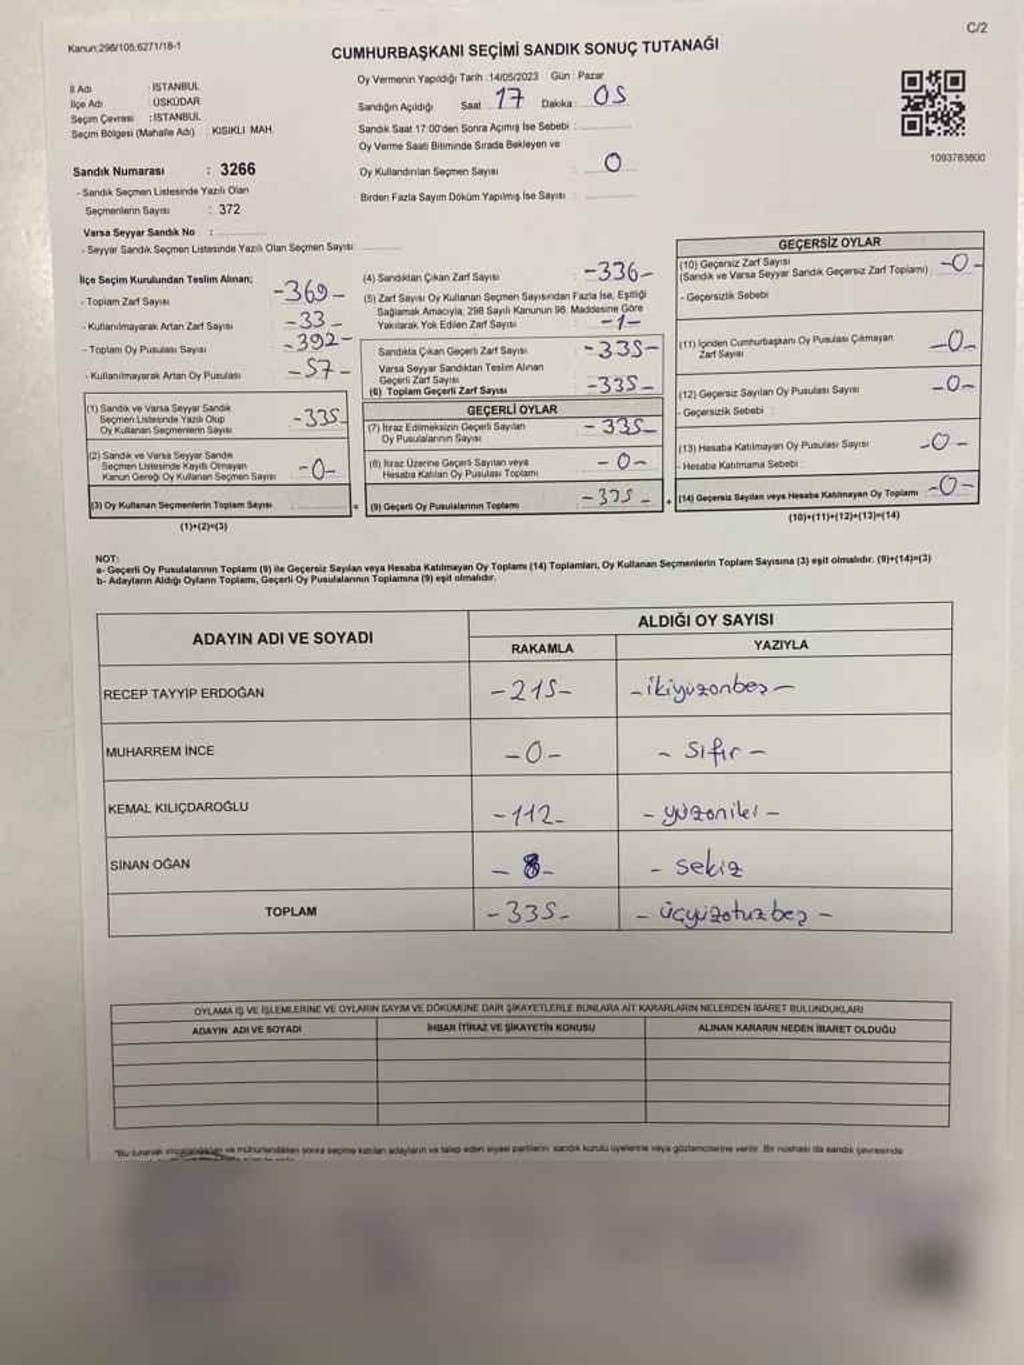 C/2
Kanun:298/105;6271/18-1
CUMHURBAŞKANI SEÇİMİ SANDIK SONUÇ TUTANAĞI
İl Adı : İSTANBUL
İlçe Adı : ÜSKÜDAR
Seçim Çevresi : İSTANBUL
Seçim Bölgesi (Mahalle Adı) : KISIKLI MAH.
Oy Vermenin Yapıldığı Tarih :14/05/2023 Gün : Pazar
Sandığın Açıldığı Saat 17 Dakika : 05
Sandık Saat 17:00'den Sonra Açımış İse Sebebi :
Oy Verme Saati Bitiminde Sırada Bekleyen ve
Oy Kullandırılan Seçmen Sayısı : 0
Birden Fazla Sayım Döküm Yapılmış İse Sayısı :
1093783800
Sandık Numarası : 3266
- Sandık Seçmen Listesinde Yazılı Olan
Seçmenlerin Sayısı : 372
Varsa Seyyar Sandık No :
- Seyyar Sandık Seçmen Listesinde Yazılı Olan Seçmen Sayısı
İlçe Seçim Kurulundan Teslim Alınan;
- Toplam Zarf Sayısı -369-
- Kullanılmayarak Artan Zarf Sayısı -33-
- Toplam Oy Pusulası Sayısı -392-
- Kullanılmayarak Artan Oy Pusulası -57-
(1) Sandık ve Varsa Seyyar Sandık
Seçmen Listesinde Yazılı Olup
Oy Kullanan Seçmenlerin Sayısı -335-
(2) Sandık ve Varsa Seyyar Sandık
Seçmen Listesinde Kayıtlı Olmayan
Kanun Gereği Oy Kullanan Seçmen Sayısı -0-
(3) Oy Kullanan Seçmenlerin Toplam Sayısı =
(1)+(2)=(3)
(4) Sandıktan Çıkan Zarf Sayısı -336-
(5) Zarf Sayısı Oy Kullanan Seçmen Sayısından Fazla İse, Eşitliği
Sağlamak Amacıyla, 298 Sayılı Kanunun 98. Maddesine Göre
Yakılarak Yok Edilen Zarf Sayısı -1-
Sandıkta Çıkan Geçerli Zarf Sayısı -335-
Varsa Seyyar Sandıktan Teslim Alınan
Geçerli Zarf Sayısı
(6) Toplam Geçerli Zarf Sayısı -335-
GEÇERLİ OYLAR
(7) İtiraz Edilmeksizin Geçerli Sayılan
Oy Pusulalarının Sayısı -335-
(8) İtiraz Üzerine Geçerli Sayılan veya
Hesaba Katılan Oy Pusulası Toplamı -0-
(9) Geçerli Oy Pusulalarının Toplamı -335- +
GEÇERSİZ OYLAR
(10) Geçersiz Zarf Sayısı
(Sandık ve Varsa Seyyar Sandık Geçersiz Zarf Toplamı) -0-
- Geçersizlik Sebebi
(11) İçinden Cumhurbaşkanı Oy Pusulası Çıkmayan
Zarf Sayısı -0-
(12) Geçersiz Sayılan Oy Pusulası Sayısı -0-
- Geçersizlik Sebebi :
(13) Hesaba Katılmayan Oy Pusulası Sayısı -0-
- Hesaba Katılmama Sebebi :
(14) Geçersiz Sayılan veya Hesaba Katılmayan Oy Toplamı -0-
(10)+(11)+(12)+(13)=(14)
NOT:
a- Geçerli Oy Pusulalarının Toplamı (9) ile Geçersiz Sayılan veya Hesaba Katılmayan Oy Toplamı (14) Toplamları, Oy Kullanan Seçmenlerin Toplam Sayısına (3) eşit olmalıdır. (9)+(14)=(3)
b- Adayların Aldığı Oyların Toplamı, Geçerli Oy Pusulalarının Toplamına (9) eşit olmalıdır.
ADAYIN ADI VE SOYADI
ALDIĞI OY SAYISI
RAKAMLA YAZIYLA
RECEP TAYYİP ERDOĞAN -215- -ikiyüzonbeş-
MUHARREM İNCE -0- -sıfır-
KEMAL KILIÇDAROĞLU -112- -yüzoniki-
SİNAN OĞAN -8- -sekiz
TOPLAM -335- -üçyüzotuzbeş-
OYLAMA İŞ VE İŞLEMLERİNE VE OYLARIN SAYIM VE DÖKÜMÜNE DAİR ŞİKAYETLERLE BUNLARA AİT KARARLARIN NELERDEN İBARET BULUNDUKLARI
ADAYIN ADI VE SOYADI İHBAR İTİRAZ VE ŞİKAYETİN KONUSU ALINAN KARARIN NEDEN İBARET OLDUĞU
*Bu tutanak imzalandıktan ve mühürlendikten sonra seçime katılan adayların ve talep eden siyasi partilerin sandık kurulu üyelerine veya gözlemcilerine verilir. Bir nüshası da sandık çevresinde